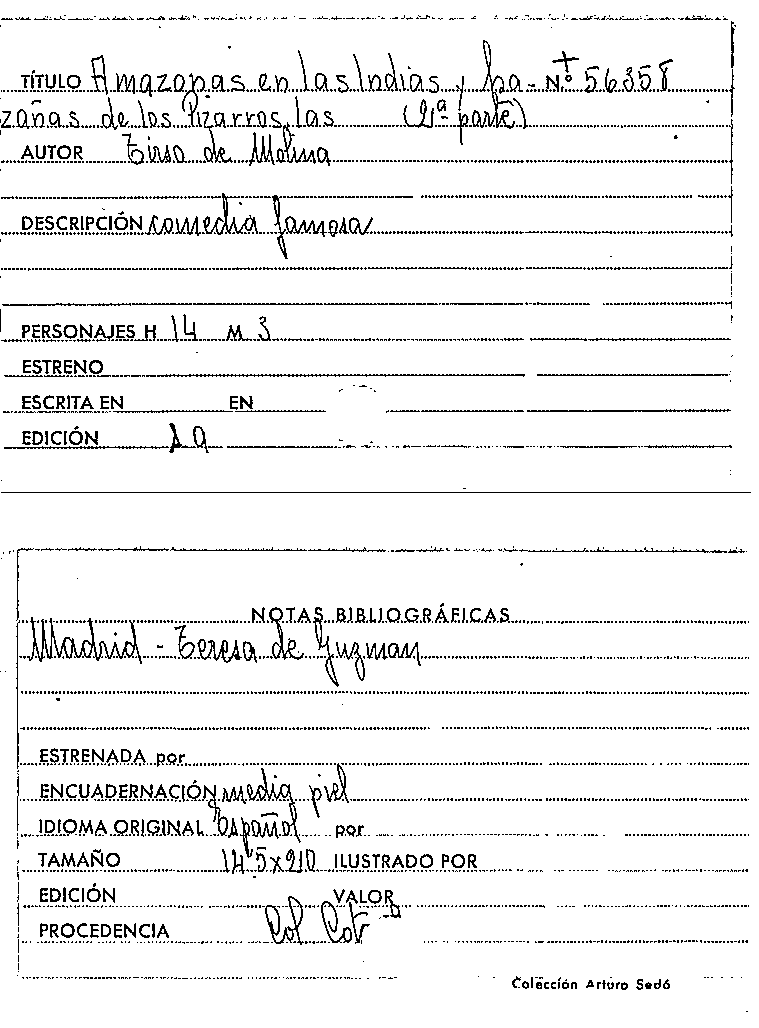 TÍTULO Amazonas en las Indias y ha- N.º 56358
zañas de los Pizarros, las (2ª parte)
AUTOR Tirso de Molina
DESCRIPCIÓN comedia famosa
PERSONAJES H 14 M 3
ESTRENO
ESCRITA EN EN
EDICIÓN
NOTAS BIBLIOGRÁFICAS
Madrid - Teresa de Guzman
ESTRENADA por
ENCUADERNACIÓN media piel
IDIOMA ORIGINAL Español por
TAMAÑO 14'5x210 ILUSTRADO POR
EDICIÓN VALOR
PROCEDENCIA Col Cot
Colección Arturo Sedó